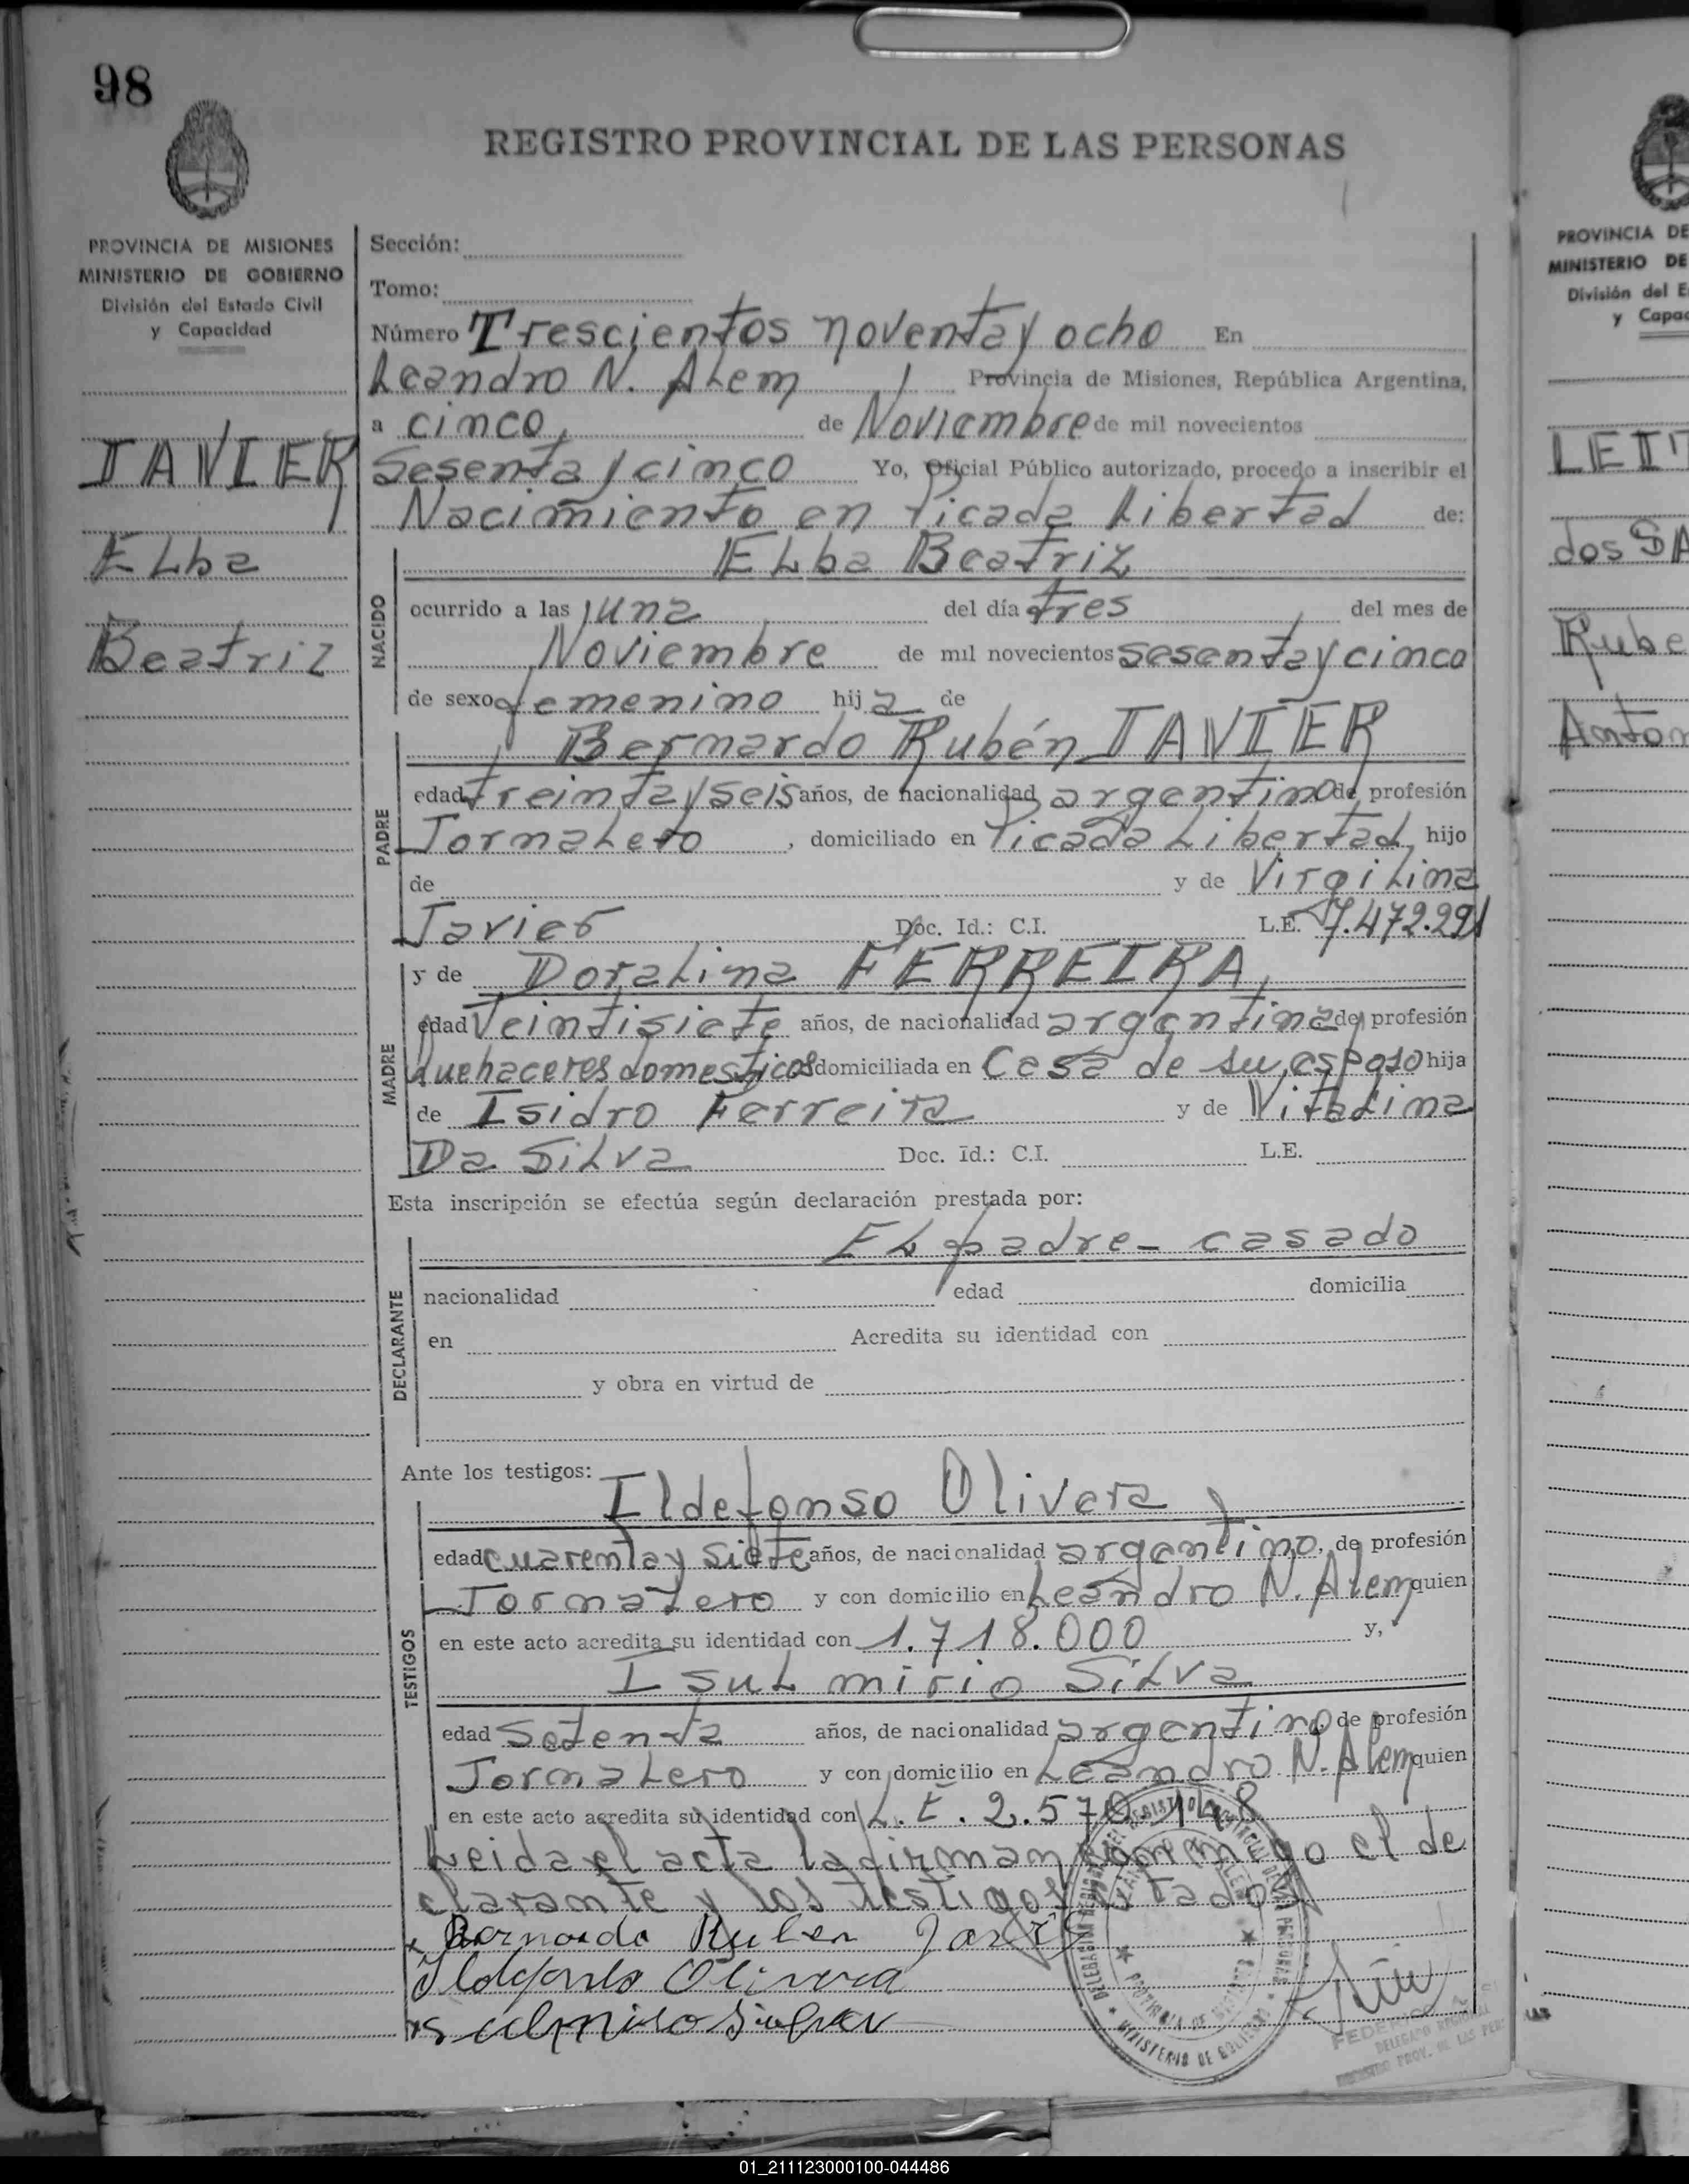 98
REGISTRO PROVINCIAL DE LAS PERSONAS
PROVINCIA DE MISIONES
MINISTERIO DE GOBIERNO
División del Estado Civil
y Capacidad
JAVIER
Elba
Beatriz
Sección:
Tomo:
Número Trescientos noventa y ocho En
Leandro N. Alem, Provincia de Misiones, República Argentina,
a cinco, de Noviembre de mil novecientos
Sesenta y cinco Yo, Oficial Público autorizado, procedo a inscribir el
Nacimiento en Picada Libertad de:
NACIDO
Elba Beatriz
ocurrido a las una del día tres del mes de
Noviembre de mil novecientos sesenta y cinco
de sexo femenino hija de
PADRE
Bernardo Rubén JAVIER
edad treinta y seis años, de nacionalidad argentino de profesión
Jornalero, domiciliado en Picada Libertad, hijo
de y de Virgilina
Javier Doc. Id.: C.I. L.E. 7.472.291
MADRE
y de Doralina FERREIRA,
edad Veintisiete años, de nacionalidad argentina de profesión
quehaceres domesticos domiciliada en Casa de su esposo hija
de Isidro Ferreira y de Vitalina
Da Silva Doc. Id.: C.I. L.E.
Esta inscripción se efectúa según declaración prestada por:
DECLARANTE
El padre - casado
nacionalidad edad domicilia
en Acredita su identidad con
y obra en virtud de
Ante los testigos:
TESTIGOS
Ildefonso Olivera,
edad cuarenta y siete años, de nacionalidad argentino, de profesión
Jornalero y con domicilio en Leandro N. Alem quien
en este acto acredita su identidad con 1.718.000 y,
Isulmirio Silva
edad Setenta años, de nacionalidad argentino de profesión
Jornalero y con domicilio en Leandro N. Alem quien
en este acto acredita su identidad con L.E. 2.570.148
Leida el acta la firman conmigo el de
clarante y los testigos citados
Bernardo Ruben
Ildefonso Olivera
MINISTERIO DE GOBIERNO
PROVINCIA DE MISIONES
FEDERICO
DELEGADO REGIONAL
REGISTRO PROV. DE LAS PER
PROVINCIA DE
MINISTERIO DE
División del E
y Capac
LEIT
dos SA
Rube
Anton
01_211123000100-044486